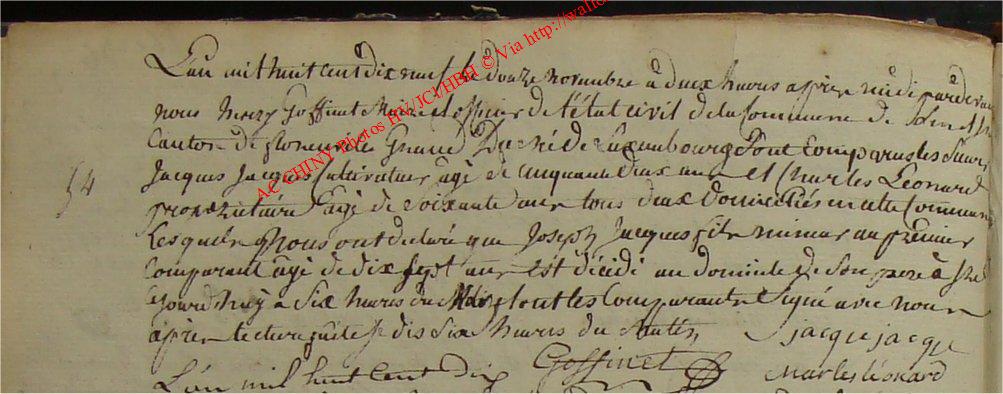 L'an mil huit cent dix neuf le douze novembre à deux heures après midi pardevant
nous henry Goffinet Maire et officier de l'état civil de la Commune de
Canton de florenville Grand Duché de Luxembourg Sont Comparus les Sieurs
54
Jacques Jacques Cultivateur âgé de Cinquante deux ans et Charles Leonard
proprietaire âgé de Soixante ans tous deux Domiciliés en cette Commune
Lesquels Nous ont declaré que Joseph Jacques fils mineur au premier
Comparant âgé de dix sept ans est décédé au domicile de Son pere à
Cejourd'huy à Six heures du Matin et ont les Comparants Signé avec nous
après lecture faite Je dis Six heures du Matin
jacque jacque
Goffinet
Charles léonard
L'an mil huit Cent dix
AC CHINY Photos HV/JCI/HBH © Via http://wallo